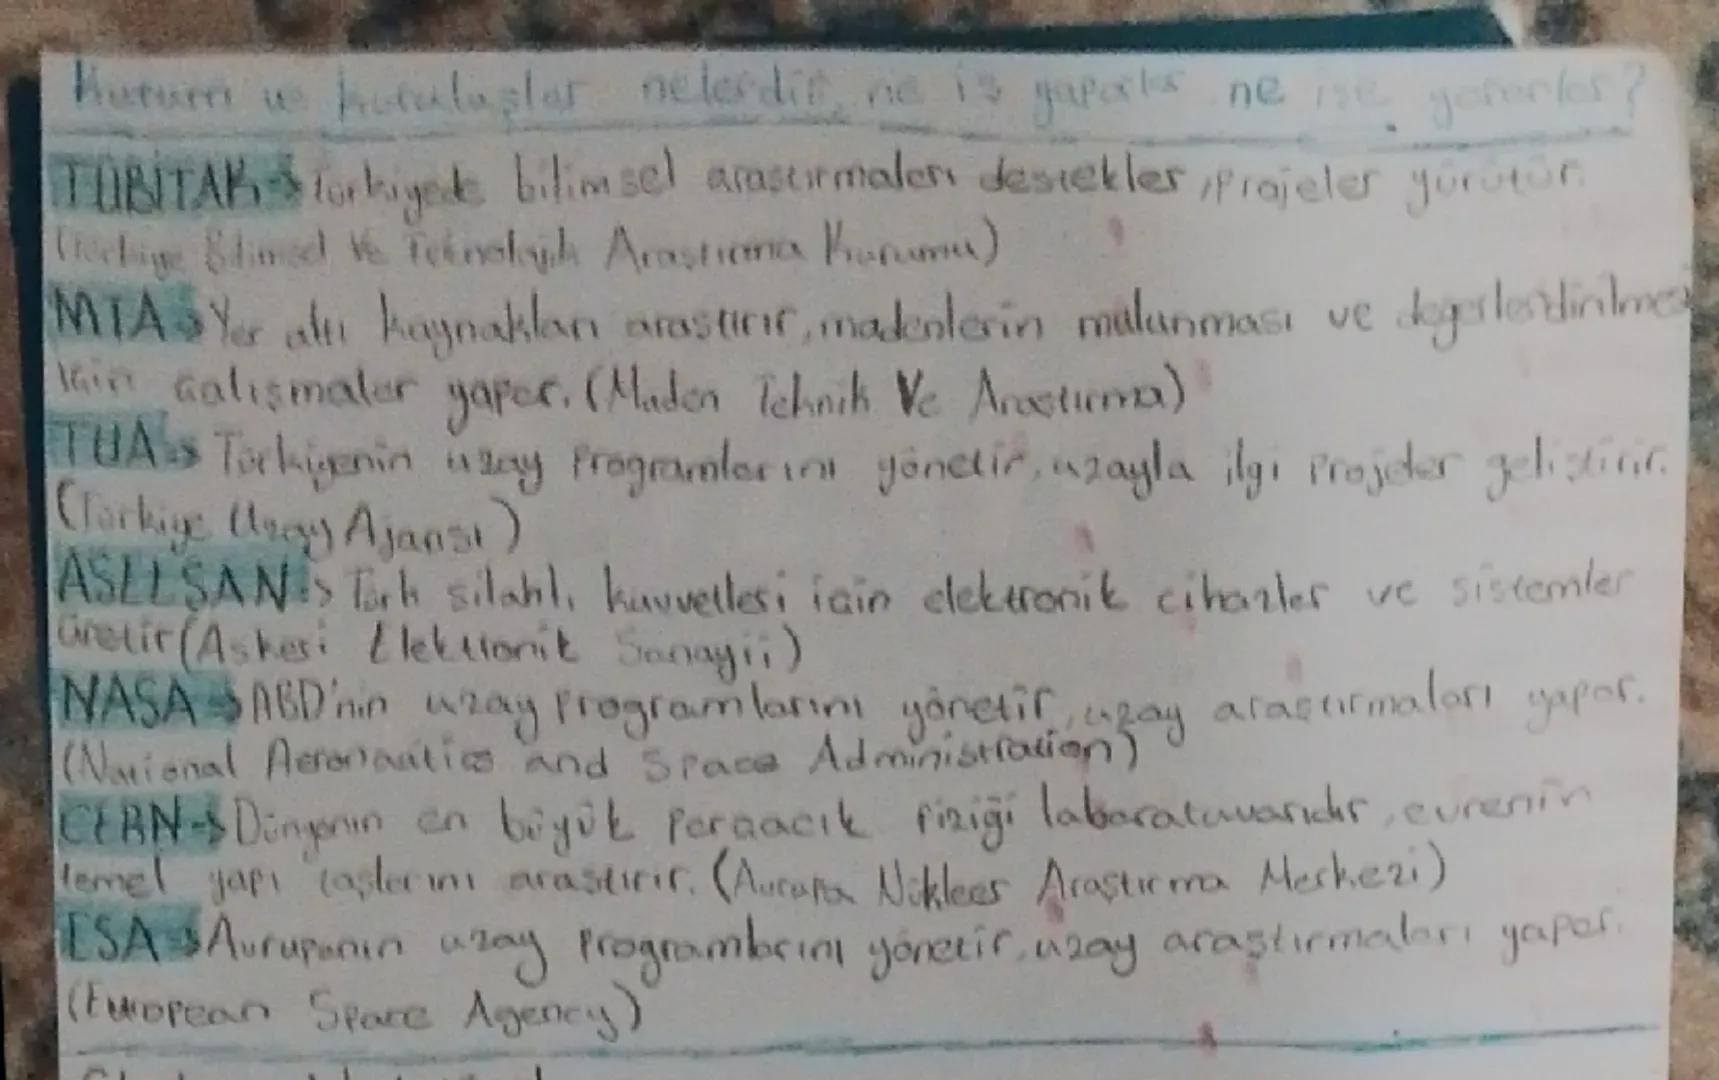 Kurum ve kuruluşlar nelerdir, ne iş yaparlar ne işe yararlar?
TÜBİTAK→Türkiyede bilimsel araştırmaları destekler, projeler yürütür.
(Türkiye Bilimsel Ve Teknolojik Araştırma Kurumu)
MTA→Yer altı kaynakları araştırır, madenlerin mulunması ve değerlendirilmesi
için çalışmalar yapar. (Maden Teknik Ve Araştırma)
TUA→Türkiyenin uzay programlarını yönetir, uzayla ilgi projeler geliştirir.
(Türkiye Uzay Ajansı)
ASELSAN→Türk silahlı kuvvetleri için elektronik cihazlar ve sistemler
üretir (Askeri Elektronik Sanayii)
NASA→ABD'nin uzay programlarını yönetir, uzay araştırmaları yapar.
(National Aeronautics and Space Administration)
CERN→Dünyanın en büyük parçacık fiziği labaratuvarıdır, evrenin
temel yapı taşlarını araştırır. (Avrupa Nükleer Araştırma Merkezi)
ESA→Avrupanın uzay programlarını yönetir, uzay araştırmaları yapar.
(European Space Agency)